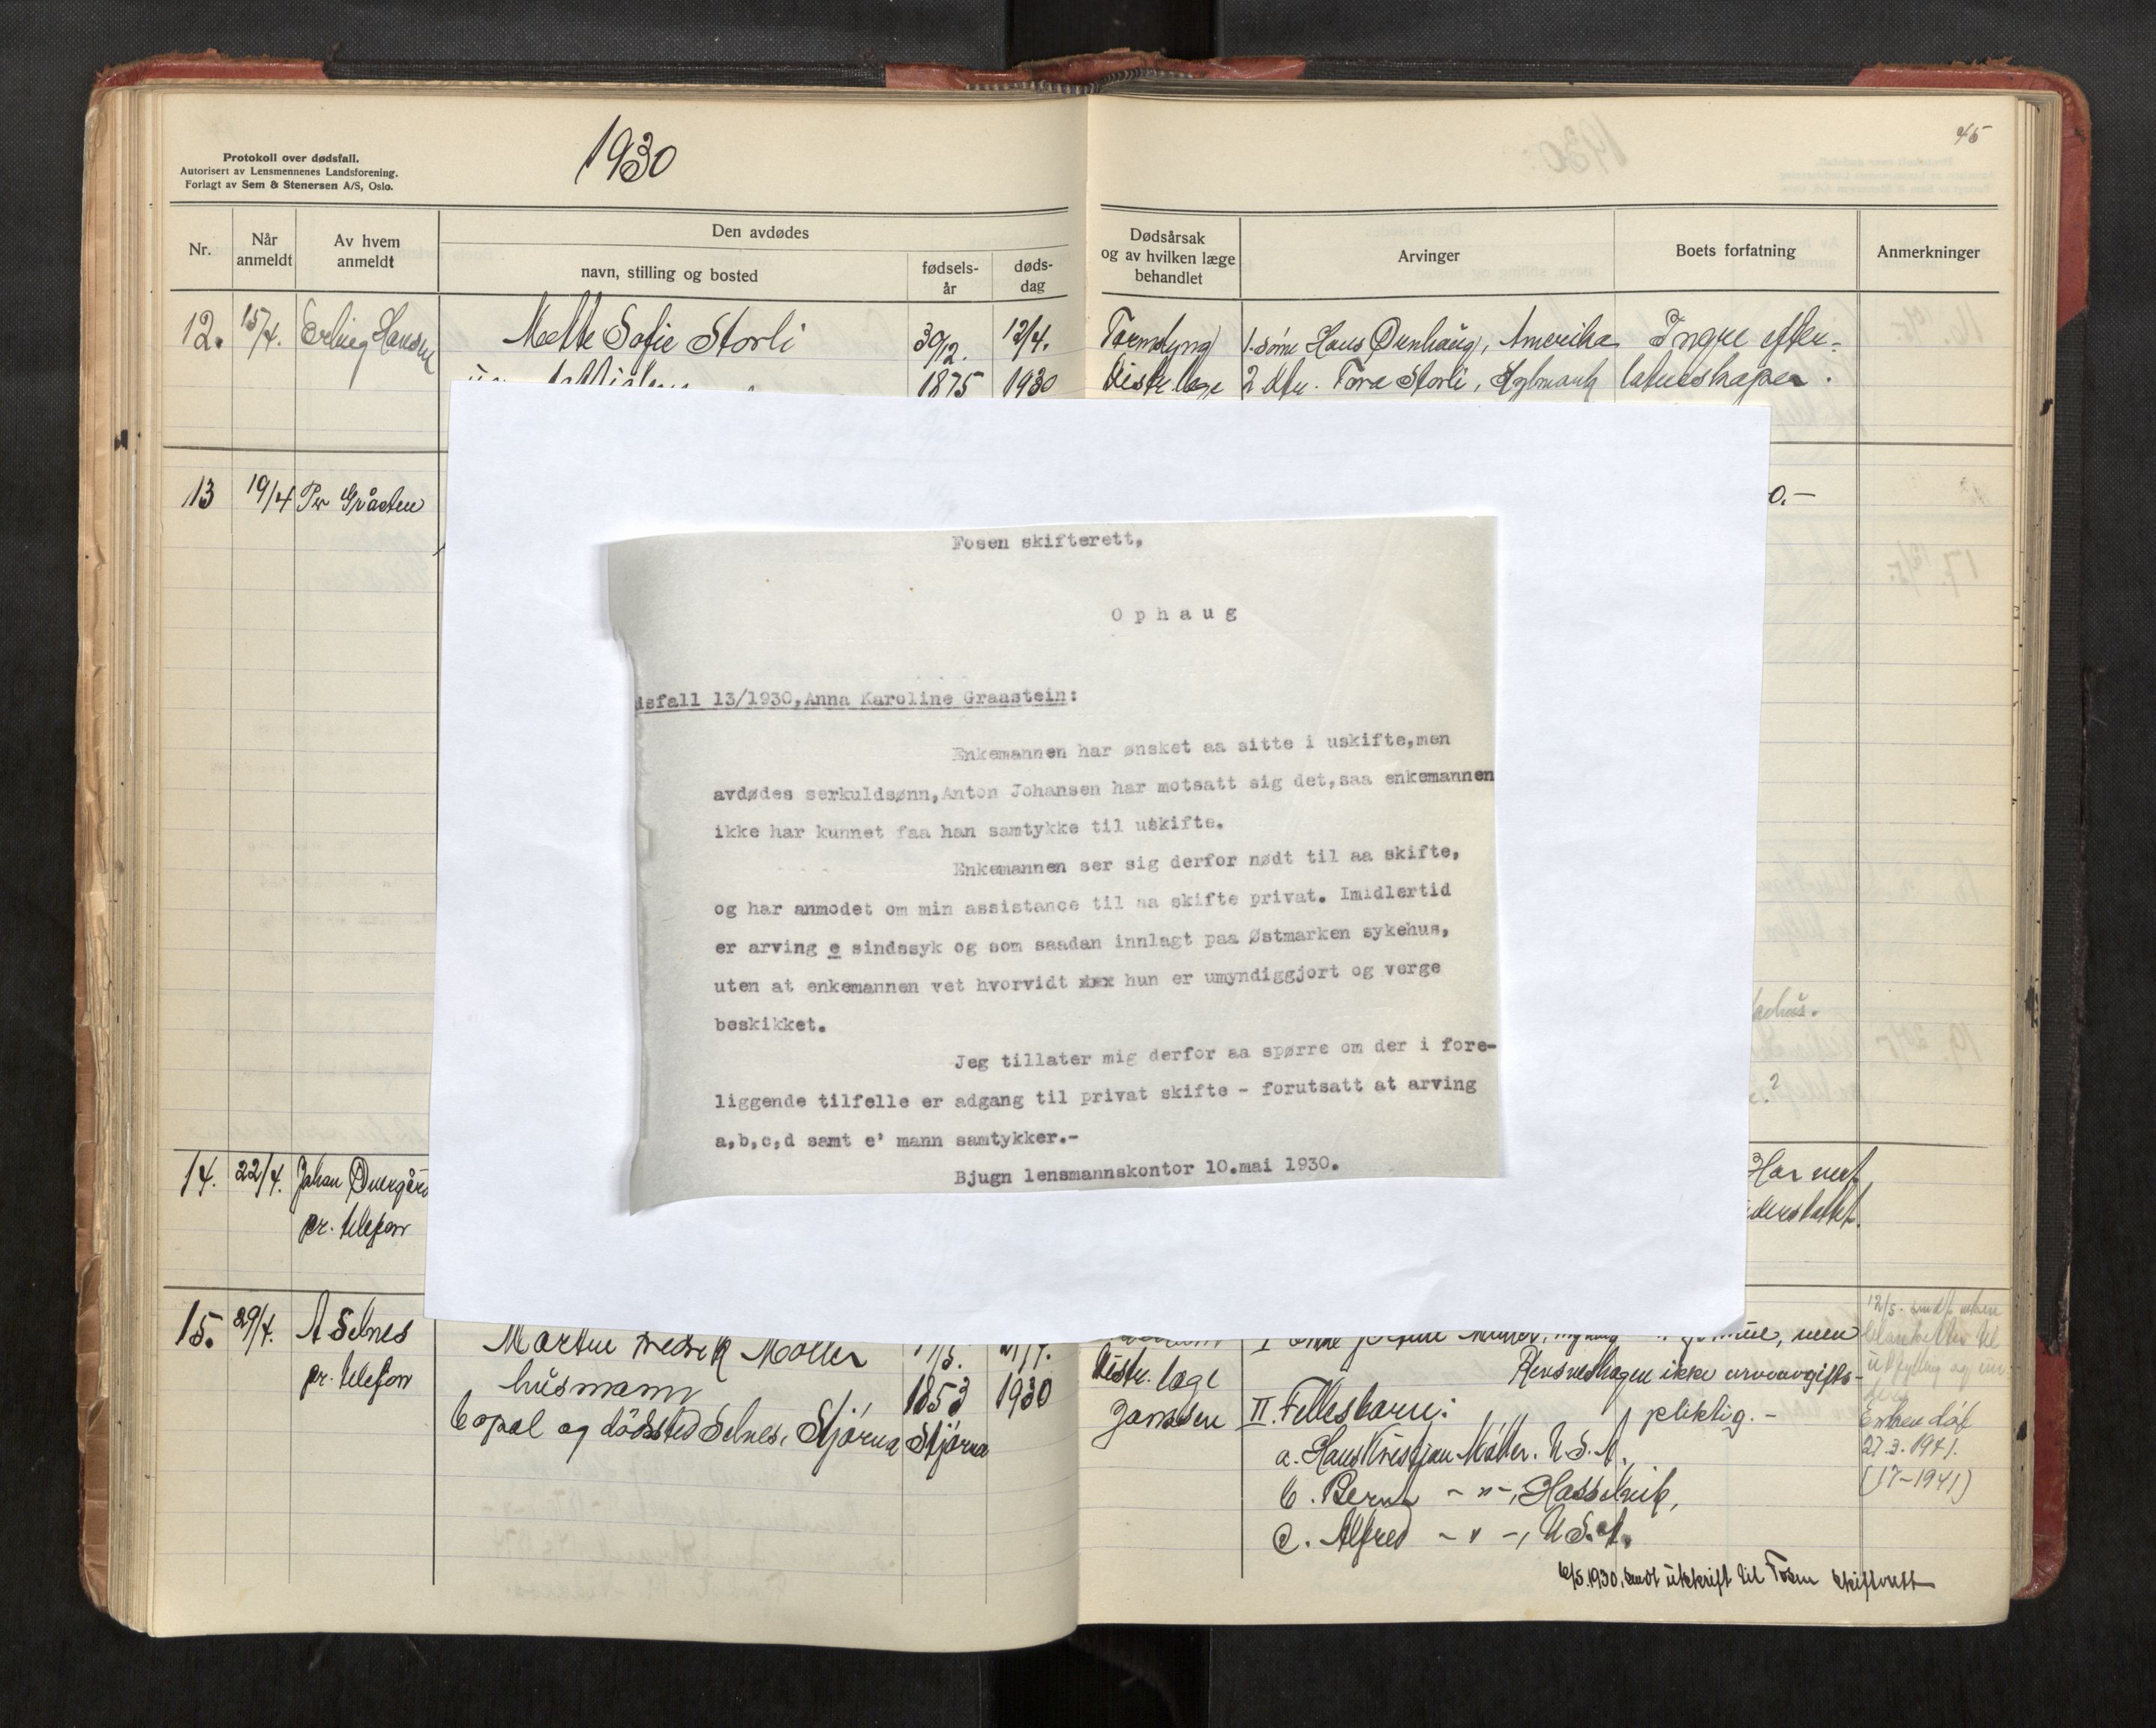 1930
45
Protokoll over dødsfall.
Autorisert av Lensmennenes Landsforening.
Forlagt av Sem & Stenersen A/S, Oslo.
Nr.
Når anmeldt
Av hvem anmeldt
Den avdødes
navn, stilling og bosted
fødsels-
år
døds-
dag
Dødsårsak
og av hvilken læge
behandlet
Arvinger
Boets forfatning
Anmerkninger
12. 15/4. Erling Hansen Mette Sofie Storli 30/12. 12/4. 1. sønn Hans Ørnhaug, Amerika Ingen efter-
1875 1930 Distr. læge 2. dtr. Tora Storli, latenskaper.
13 19/4 Per Gråsten 0.-
Fosen skifterett,
Ophaug
dsfall 13/1930, Anna Karoline Graastein:
Enkemannen har ønsket aa sitte i uskifte,men
avdødes serkuldsønn,Anton Johansen har motsatt sig det,saa enkemannen
ikke har kunnet faa han samtykke til uskifte.
Enkemannen ser sig derfor nødt til aa skifte,
og har anmodet om min assistance til aa skifte privat. Imidlertid
er arving e sindssyk og som saadan innlagt paa Østmarken sykehus,
uten at enkemannen vet hvorvidt xxx hun er umyndiggjort og verge
beskikket.
Jeg tillater mig derfor aa spørre om der i fore-
liggende tilfelle er adgang til privat skifte - forutsatt at arving
a,b,c,d samt e' mann samtykker.-
Bjugn lensmannskontor 10.mai 1930.
14. 22/4. Johan Øvergård Har vert
pr. telefon
15. 29/4. A Selnes Martin Fredrik Møller men
pr. telefon husmann 1853 1930 Distr. læge ikke arveavgifts-
Bopæl og dødssted Selnes, Stjørna Stjørna Janssen II. Fellesbarn: pliktig. -
a. Hans Kristian Møller. U.S.A.
b. Bernt - " -, Hasselvik,
c. Alfred - " -, U.S.A.
Enken død
27.3.1941.
(17-1941)
6/5.1930, sendt utskrift til Fosen skifterett